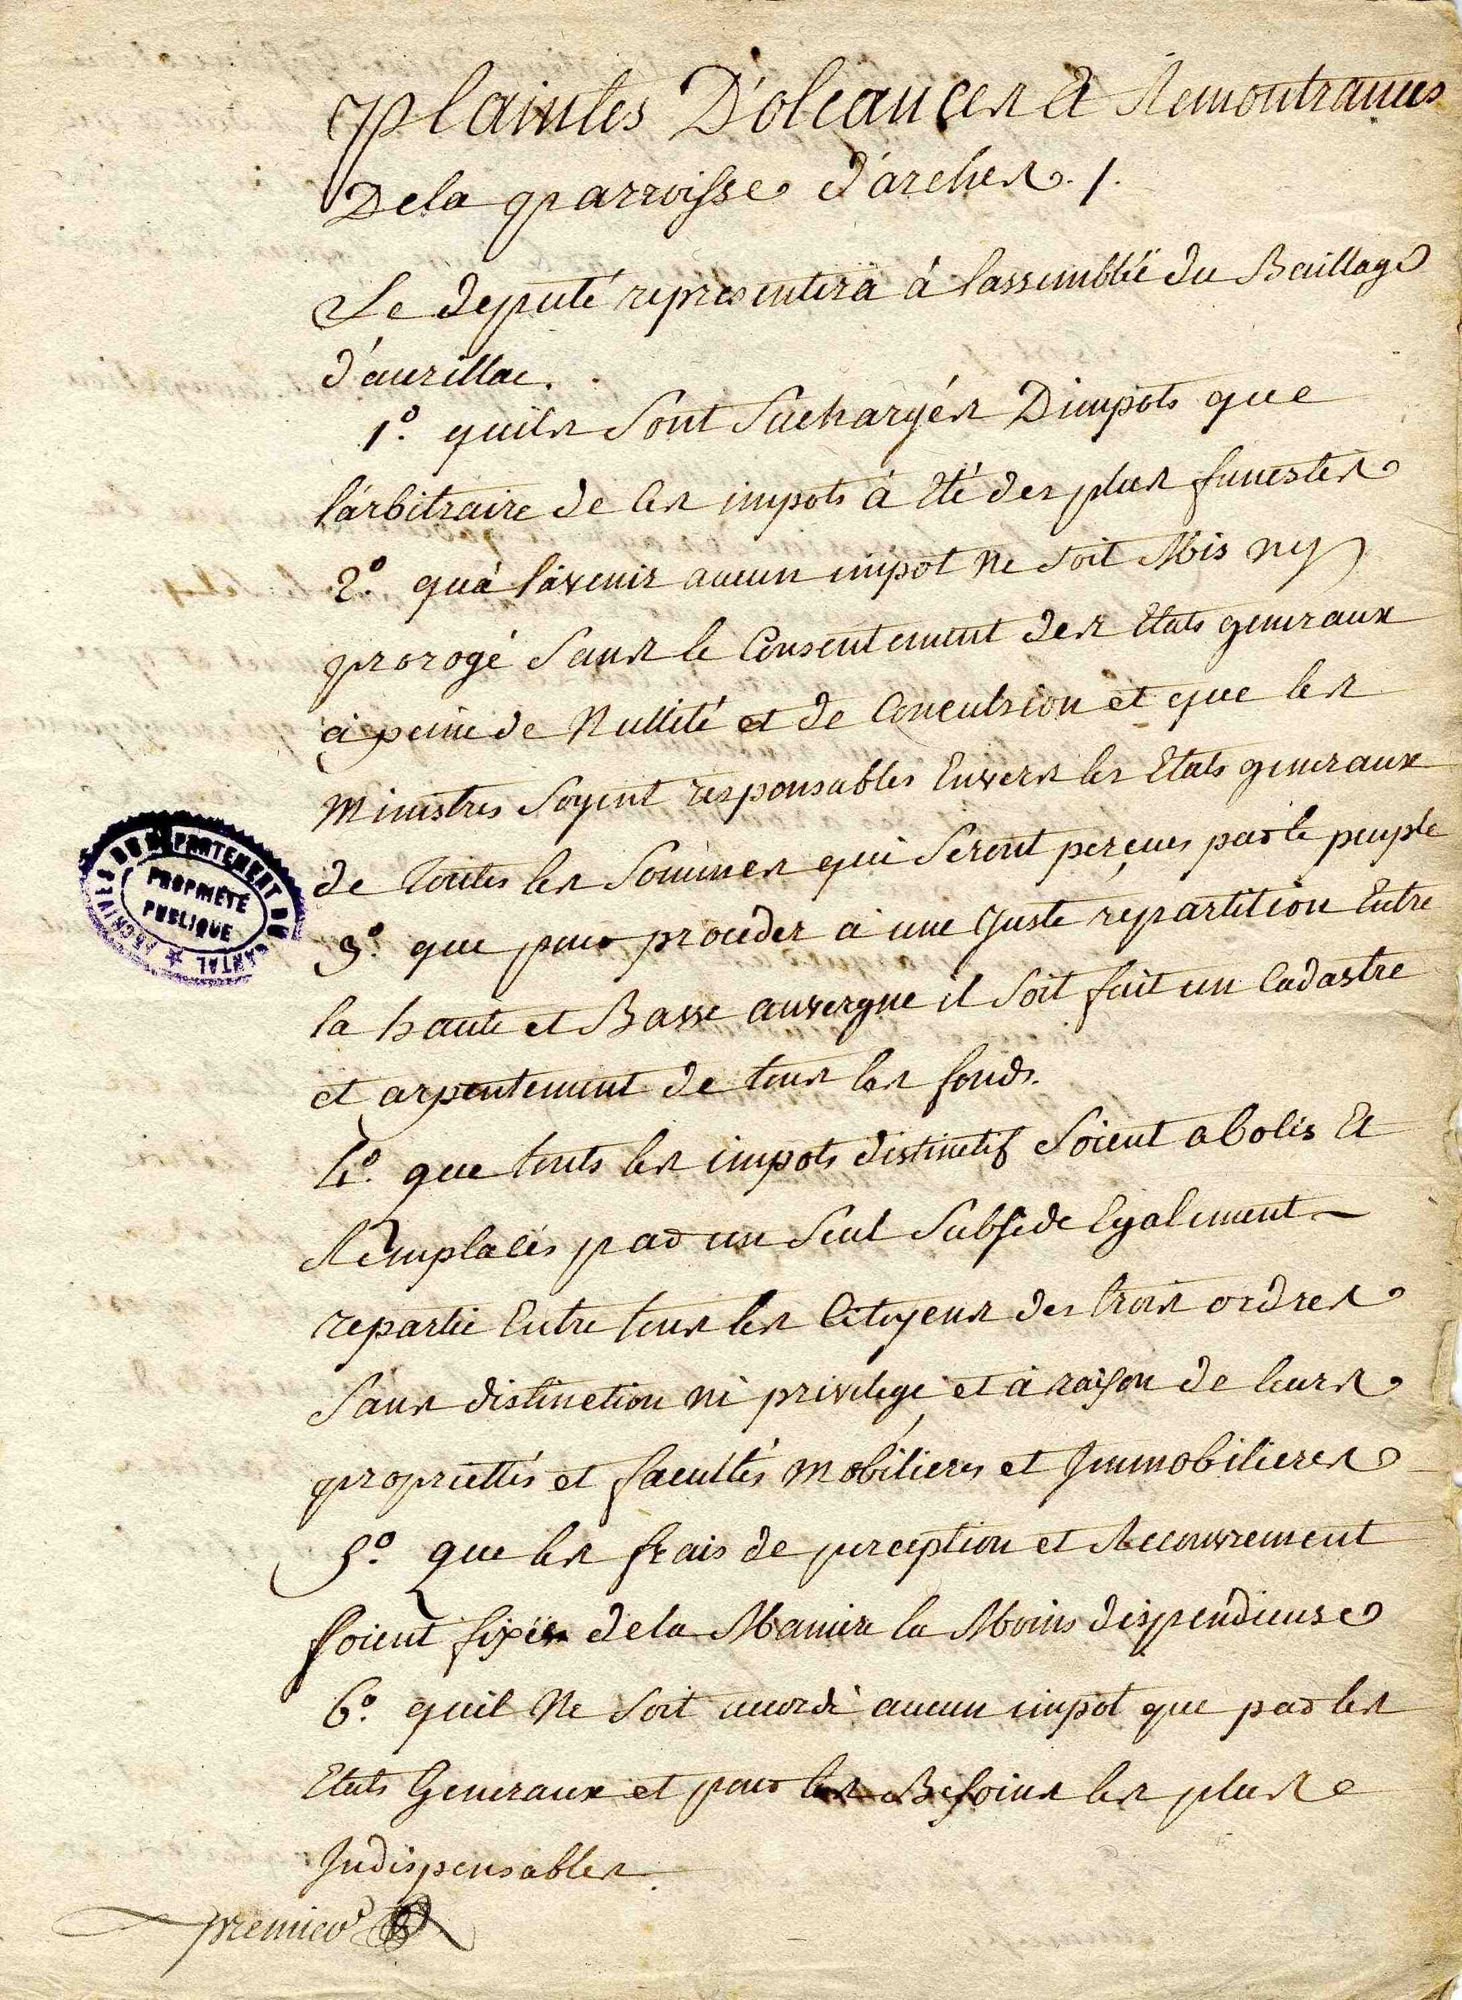 plaintes D'oleances Et Remontrances
De la parroisse d'arches. /.
Le deputé representera á lassemblée du Baillage
d'aurillac.
1º. quils sont Suchargés Dimpots que
lárbitraire de les impots á eté des plus funestes
2º. quá lávenir aucun impot Ne soit Mis ny
prorogé Sans le Consentement des Etats generaux
á peine de Nullité et de Concutsion et que les
Ministres Soyent responsables Envers les Etats generaux
de toutes les Sommes qui Seront perçues par le peuple
3º. que pour proceder a une Juste repartition Entre
la haute et Basse auvergne il Soit fait un Cadastre
et arpentement de tous les fonds.
4º. que touts les impots distinctif Soient abolis Et
Remplacés par un Seul Subside Egalement
repartie Entre tous les Citoyens des trois ordres
Sans distinction ni privilege et á raison de leurs
propriettés et facultés mobilieres et Jmmobilieres
5º. que les frais de perception et Recouvrement
soient fixés de la Maniere la Moins dispendieuse
6º. quil Ne soit accordé aucun impot que par les
Etats Generaux et pour les Besoins les plus
Jndispensables.
premier
ARCHIVES DU DÉPARTEMENT DU CANTAL
PROPRIÉTÉ
PUBLIQUE